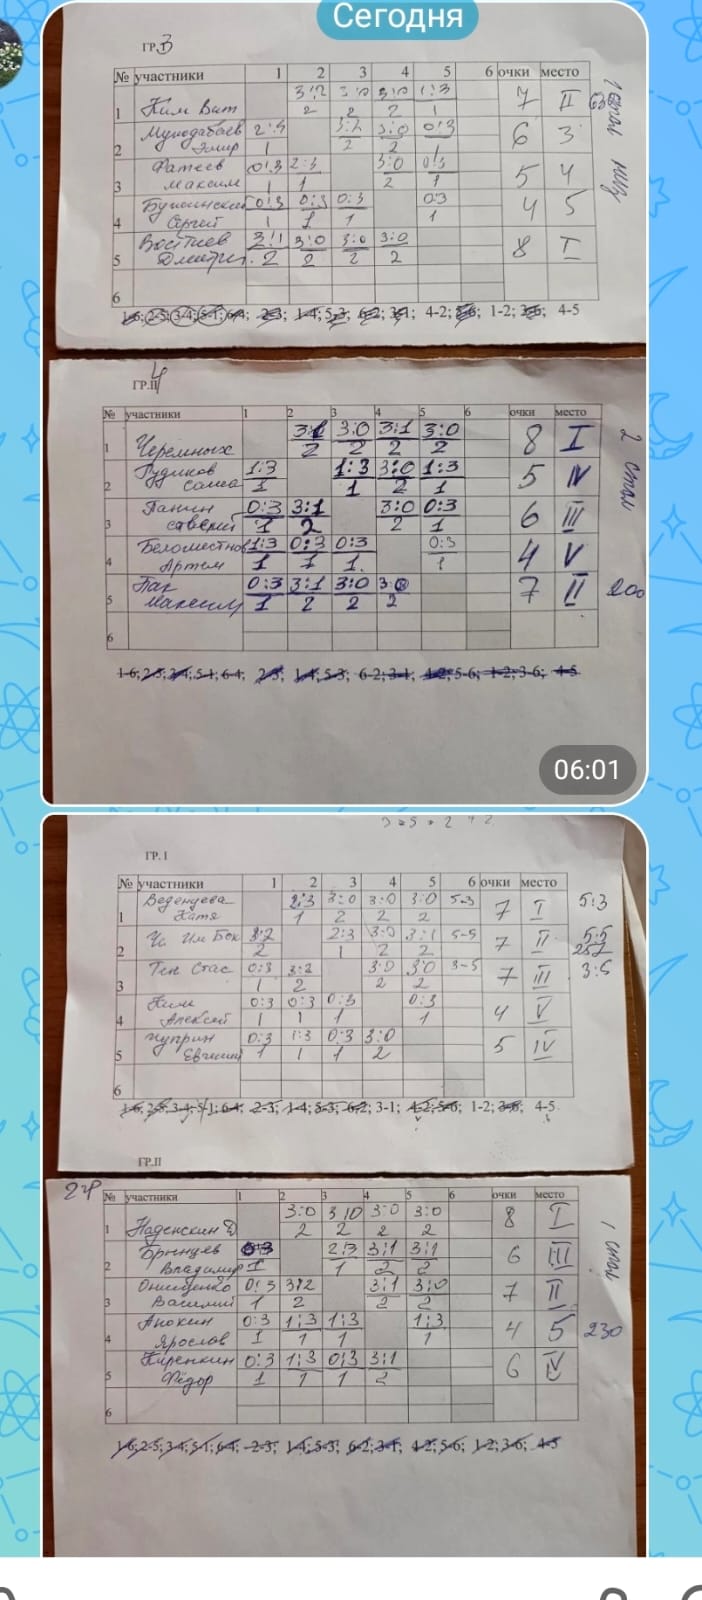 Сегодня
ГР.3
№ участники 1 2 3 4 5 6 очки место
1 Ким Вит 3:2 3:0 3:0 1:3
2 2 2 1 7 II
2 Эмир 2:3 3:2 3:0 0:3
1 2 2 1 6 3
3 Фатеев Максим 0:3 2:3 3:0 0:3
1 1 2 1 5 4
4 Сергей 0:3 0:3 0:3 0:3
1 1 1 1 4 5
5 Дмитрий 3:1 3:0 3:0 3:0
2 2 2 2 8 I
6
1-6; 2-5; 3-4; 5-1; 6-4; 2-3; 1-4; 5-3; 6-2; 3-1; 4-2; 5-6; 1-2; 3-6; 4-5
ГР.II 4
№ участники 1 2 3 4 5 6 очки место
1 Черемных 3:1 3:0 3:1 3:0
2 2 2 2 8 I
2 стол
2 Гудиков 1:3 1:3 3:0 1:3
1 1 2 1 5 IV
3 Панин 0:3 3:1 3:0 0:3
1 2 2 1 6 III
4 Беломестнов Артем 1:3 0:3 0:3 0:3
1 1 1 1 4 V
5 Пак Максим 0:3 3:1 3:0 3:0
1 2 2 2 7 II 200
6
1-6; 2-5; 3-4; 5-1; 6-4; 2-3; 1-4; 5-3; 6-2; 3-1; 4-2; 5-6; 1-2; 3-6; 4-5
06:01
ГР. I
№ участники 1 2 3 4 5 6 очки место
1 Веденцева Катя 2:3 3:0 3:0 3:0 5-3
1 2 2 2 7 I 5:3
2 Бок 3:2 2:3 3:0 3:1 5-5
2 1 2 2 7 II 5:5
257
3 Тен Стас 0:3 3:2 3:0 3:0 3-5
1 2 2 2 7 III 3:5
4 Ким Алексей 0:3 0:3 0:3 0:3
1 1 1 1 4 V
5 Чуприн Евгений 0:3 1:3 0:3 3:0
1 1 1 2 5 IV
6
1-6; 2-5; 3-4; 5-1; 6-4; 2-3; 1-4; 5-3; 6-2; 3-1; 4-2; 5-6; 1-2; 3-6; 4-5
ГР.II
2 гр
№ участники 1 2 3 4 5 6 очки место
1 Наденскин Д 3:0 3:0 3:0 3:0
2 2 2 2 8 I
1 стол
2 Брынцев Владимир 0:3 2:3 3:1 3:1
1 1 2 2 6 III
3 Онищенко Василий 0:3 3:2 3:1 3:0
1 2 2 2 7 II
4 Анокин Ярослов 0:3 1:3 1:3 1:3
1 1 1 1 4 5 230
5 Киренкин Фёдор 0:3 1:3 0:3 3:1
1 1 1 2 6 IV
6
1-6; 2-5; 3-4; 5-1; 6-4; 2-3; 1-4; 5-3; 6-2; 3-1; 4-2; 5-6; 1-2; 3-6; 4-5